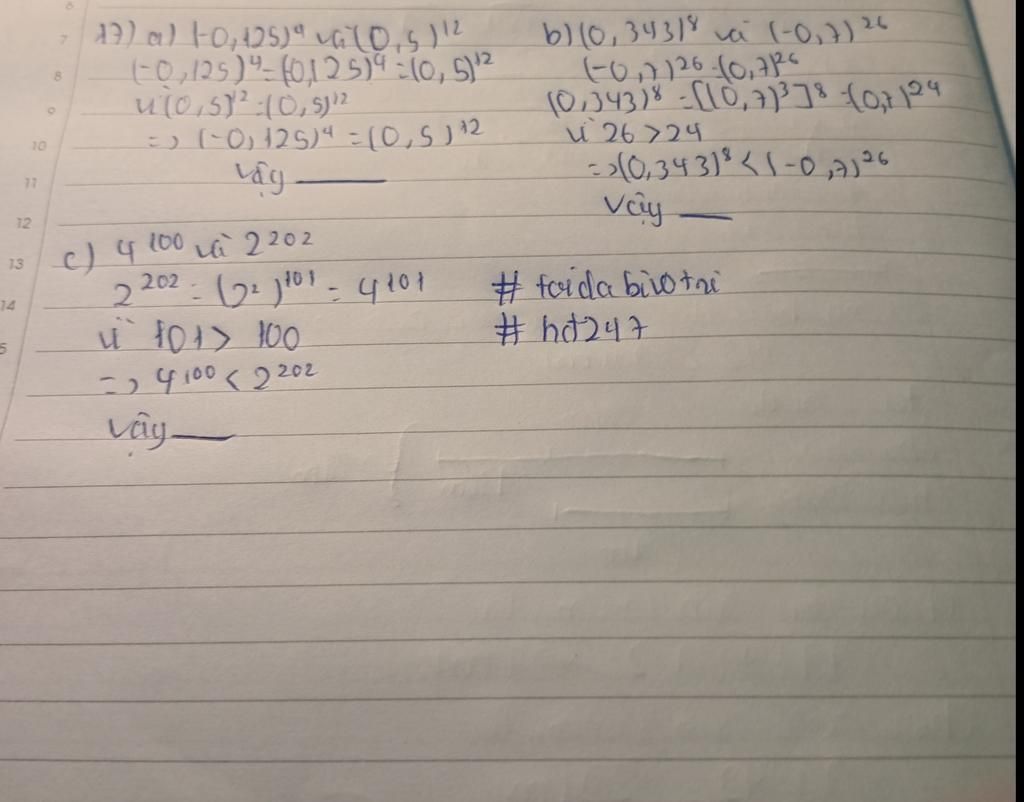 17) a) (-0,125)⁴ và (0,5)¹²
(-0,125)⁴=(0,125)⁴=(0,5)¹²
vì (0,5)¹²=(0,5)¹²
=> (-0,125)⁴=(0,5)¹²
Vậy ___
b) (0,343)⁸ và (-0,7)²⁶
(-0,7)²⁶=(0,7)²⁶
(0,343)⁸=[(0,7)³]⁸=(0,7)²⁴
vì 26>24
=>(0,343)⁸<(-0,7)²⁶
Vậy ___
c) 4¹⁰⁰ và 2²⁰²
2²⁰²=(2²)¹⁰¹=4¹⁰¹
vì 101>100
=> 4¹⁰⁰<2²⁰²
Vậy ___
#
# hdt247
6
7
8
9
10
11
12
13
14
5